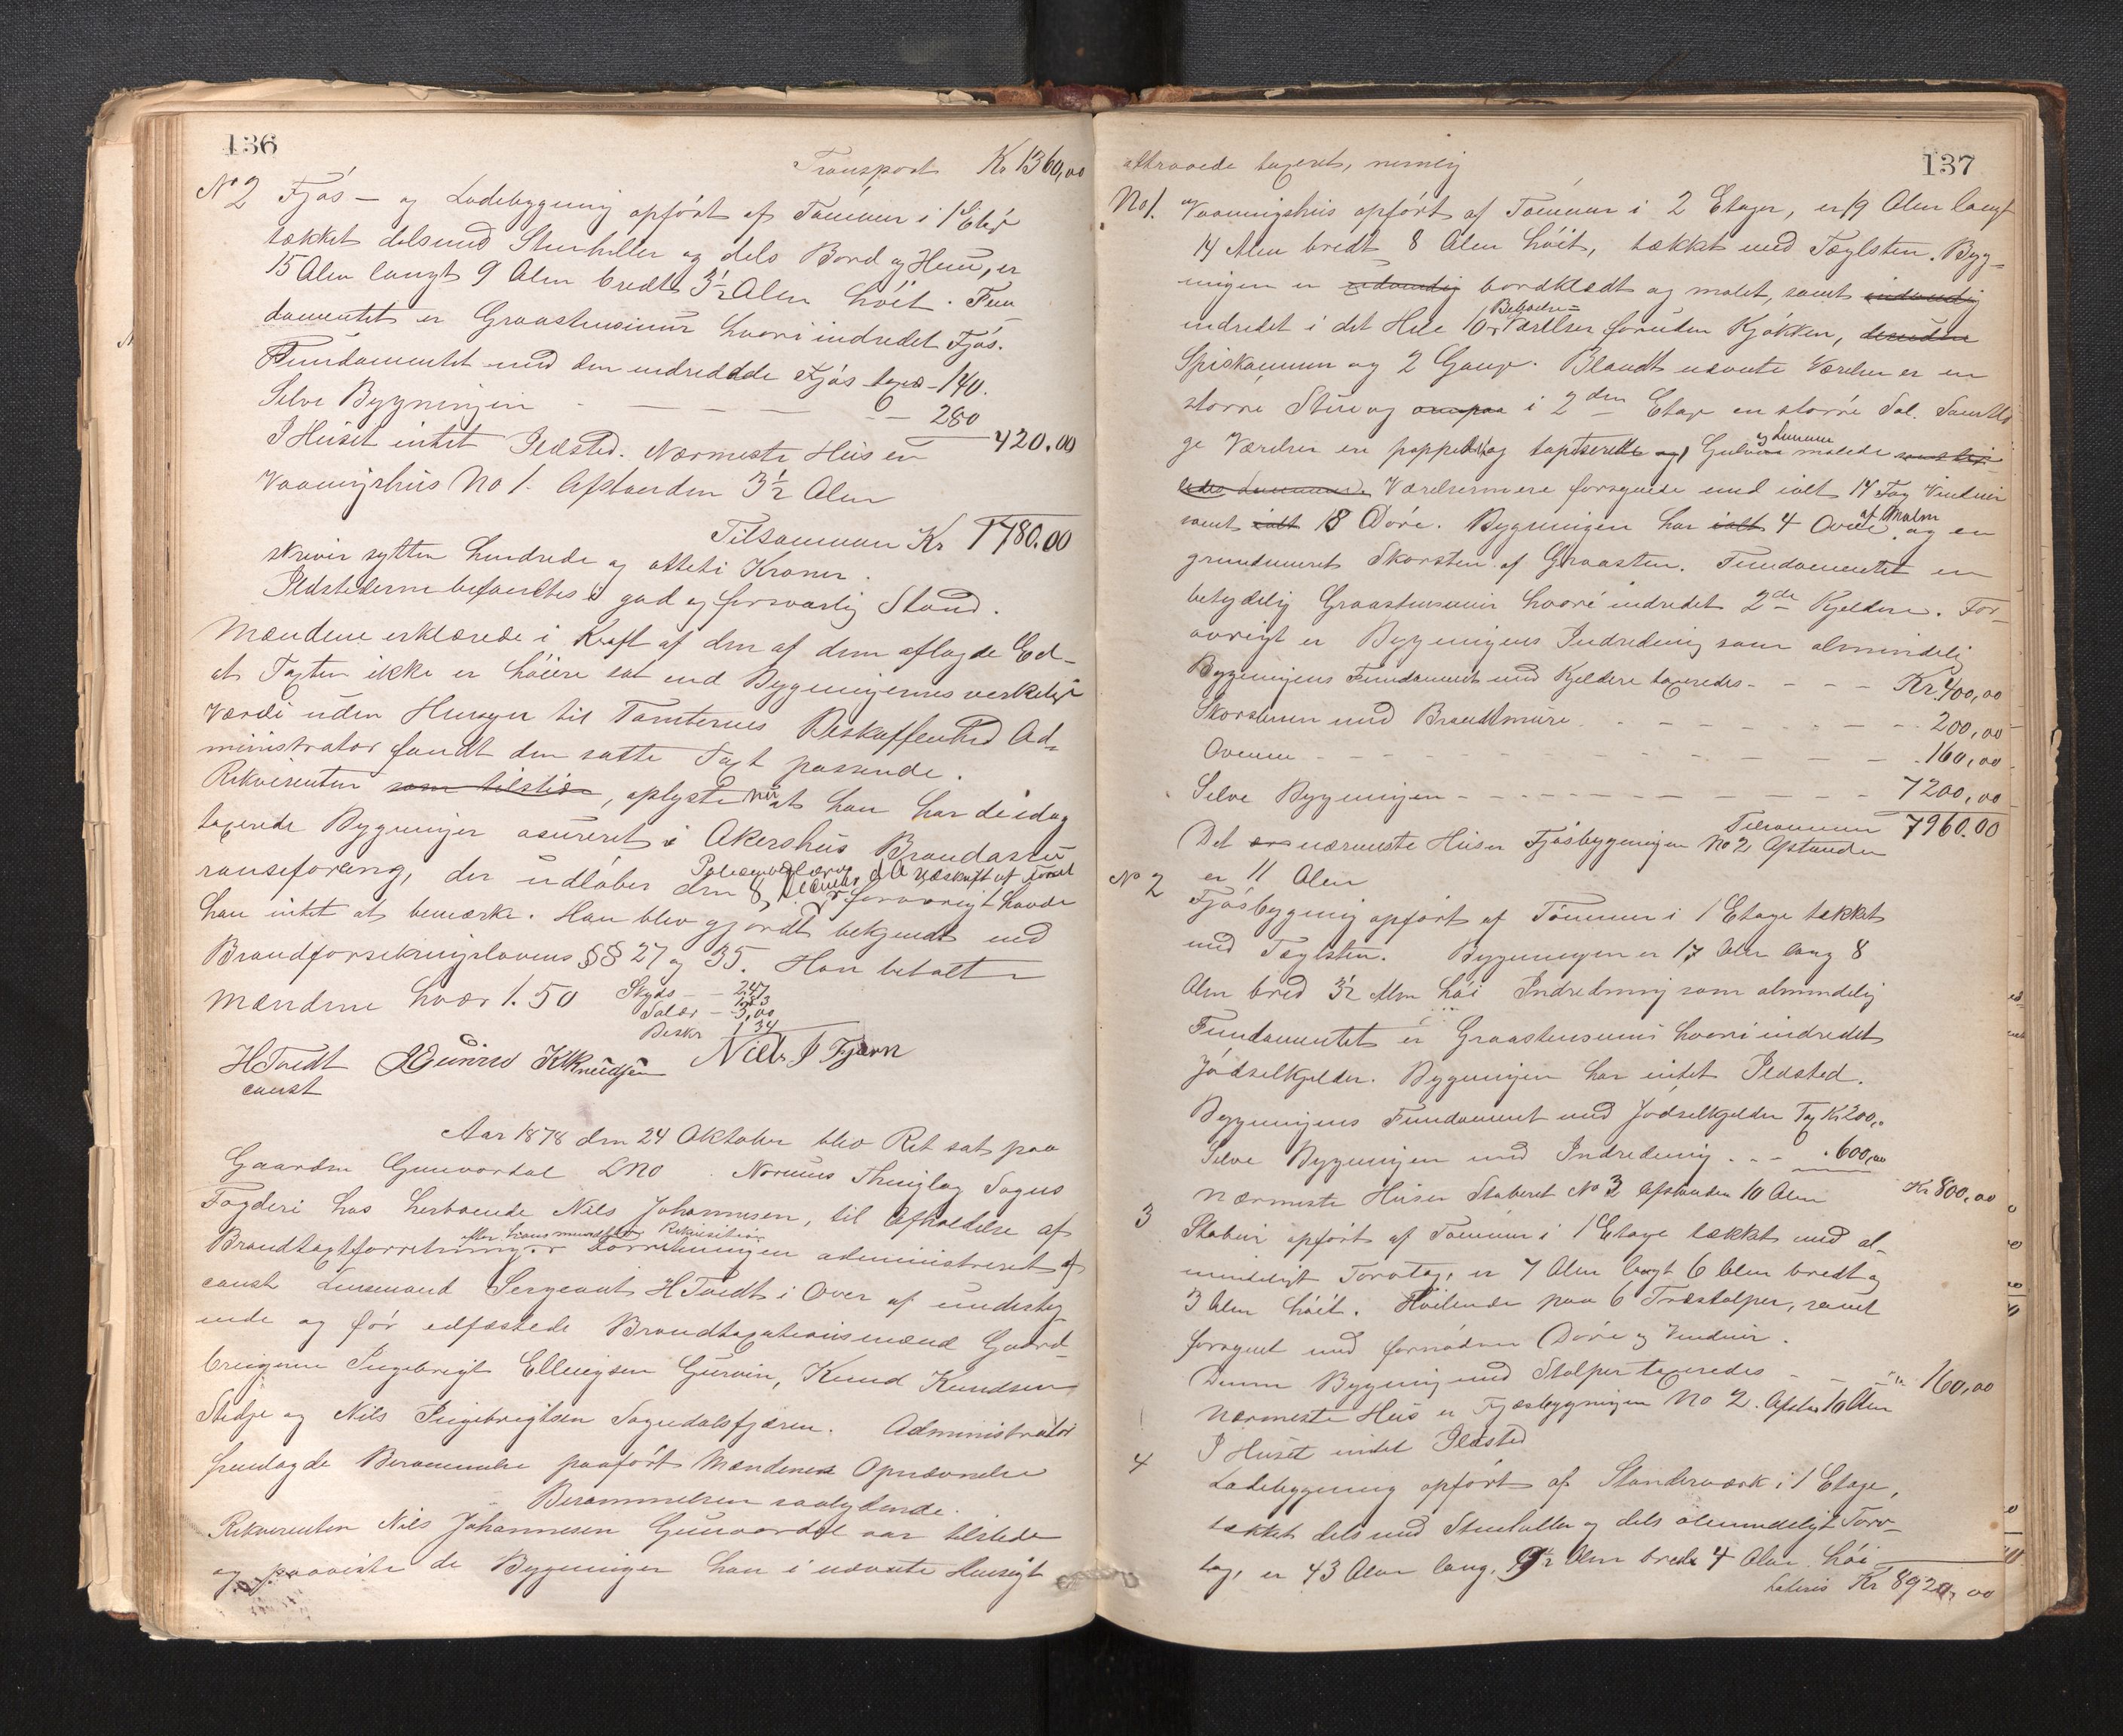 136
Transport Kr 1360,00
No 2 Fjøs- og Ladebygning opført af Tømmer i 1 Etage
tækket dels med Stenheller og dels Bord og Hun, er
15 Alen langt 9 Alen bredt 3 1/2 Alen høit. Fun-
damentet er Graastensmur hvori indredet Fjøs.
Fundamentet med den indreddede Fjøs taxeres 140.
Selve Bygningen - - - - 280
420.00
I Huset intet Ildsted. Nærmeste Hus er
Vaaningshus No 1. Afstanden 3 1/2 Alen
Tilsammen Kr 1780.00
skriver sytten hundrede og otteti Kroner.
Ildstederne befandtes i god og forsvarlig Stand.
Mændene erklærede i Kraft af den af dem aflagde Ed
at Taxten ikke er høiere sat end Bygningernes verkelige
Værdi uden Hensyn til Tomternes Beskaffenhed. Ad-
ministrator fandt den satte Taxt passende.
Rekvirenten som tilstede, oplyste at han har de idag
taxerede Bygninger asureret i Akershus Brandassu-
ranseforening, der udløber den 8 December d A
forøvrigt havde
han intet at bemærke. Han blev gjordt bekjendt med
Brandforsikringslovens §§ 27 og 35. Han betalte
Mændene hver 1.50 Skyds - 247
Salær - 3,00
Beskr 1 34
H Tvedt K Knudsen Niels I Fjæren
const
Aar 1878 den 24 Oktober blev Ret sat paa
Gaarden Gunvordal LNo . Norums Thinglag Sogns
Fogderi hos herboende Nils Johannesen, til Afholdelse af
efter hans mundtlige Rekvisition
Brandtaxtforretning. Forretningen administreret af
const Lensmand Sergeant H Tvedt i Over af undersky
ende og før edfæstede Brandtaxationsmænd Gaard-
brugerne Ingebrigt Ellingsen Gurvin, Knud Knudsen
Stedje og Nils Ingebrigtsen Sogndalsfjæren. Administrator
fremlagde Berammelse paaført Mændenes Opnævnelse
Berammelsen saalydende.
Rekvirenten Nils Johannesen Gunvordal var tilstede
og paaviste de Bygninger han i nævnte Hensigt
137
attraaede taxeret, nemlig
No 1. Vaaningshus opført af Tømmer i 2 Etager, er 19 Alen langt
14 Alen bredt 8 Alen høit, tækket med Taglsten. Byg-
ningen er udvendig bordklædt og malet, samt indvendig
Beboelses
indredet i det Hele 10 Værelser foruden Kjøkken, desuden
Spiskammer og 2 Gange. Blandt nævnte Værelser er en
større Stue og i 2den Etage en større Sal. Samtli-
ge Værelser er pappet og taptserede og Gulvene malede
Værelserne ere forsynede med ialt 14 Fag Vinduer
af Malm
samt ialt 18 Døre. Bygningen har ialt 4 Ovne og en
grundmuret Skorsten af Graasten. Fundamentet en
betydelig Graastensmur hvori indredet 2de Kjeldere. For-
øvrigt er Bygningens Indredning som almindelig
Bygningens Fundament med Kjeldere taxeredes - - - Kr. 400,00
Skorstenen med Brandmure - - - - 200,00
Ovnene - - - - 160,00
Selve Bygningen - - - - 7200,00
Tilsammen 7960.00
Det nærmeste Hus er Fjøsbygningen No 2 Afstanden
er 11 Alen
No 2 Fjøsbygning opført af Tømmer i 1 Etage tækket
med Taglsten. Bygningen er 17 Alen lang 8
Alen bred 3 1/2 Alen høi Indredning som almindelig
Fundamentet er Graastensmur hvori indredet
Gjødselkjelder. Bygningen har intet Ildsted.
Bygningens Fundament med Gjødselkjelder Tax Kr 200,00
Selve Bygningen med Indredning - - - 600,00
Kr 800,00
Nærmeste Hus er Staburet No 3 Afstanden 10 Alen
3 Stabur opført af Tømmer i 1 Etage tækket med al-
mindeligt Torvtag, er 7 Alen langt 6 Alen bredt og
3 Alen høit. Hvilende paa 6 Træstolper, samt
forsynet med fornødne Døre og Vinduer.
Denne Bygning med Stolper taxeredes - - - 160,00
Nærmeste Hus er Fjøsbygningen No 2. Afstand 10 Alen
I Huset intet Ildsted
4 Ladebygning opført af Standerværk i 1 Etage,
tækket dels med Stenheller og dels almindeligt Torv-
tag, er 43 Alen lang, 9 1/2 Alen bred 4 Alen høi
Lateris Kr 8920,00